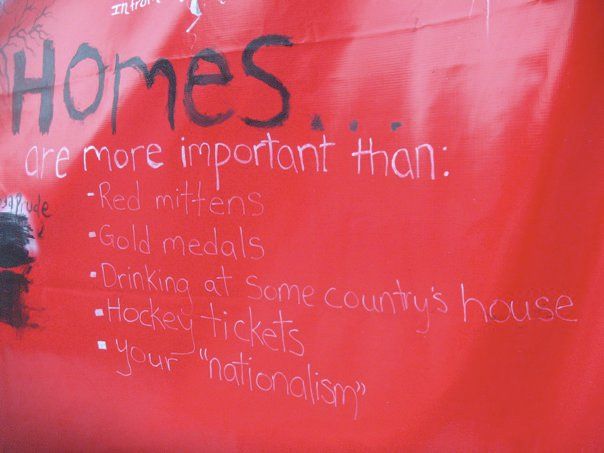 Homes...
are more important than:
-Red mittens
▪Gold medals
▪Drinking at some country's house
▪Hockey tickets
▪your "nationalism"